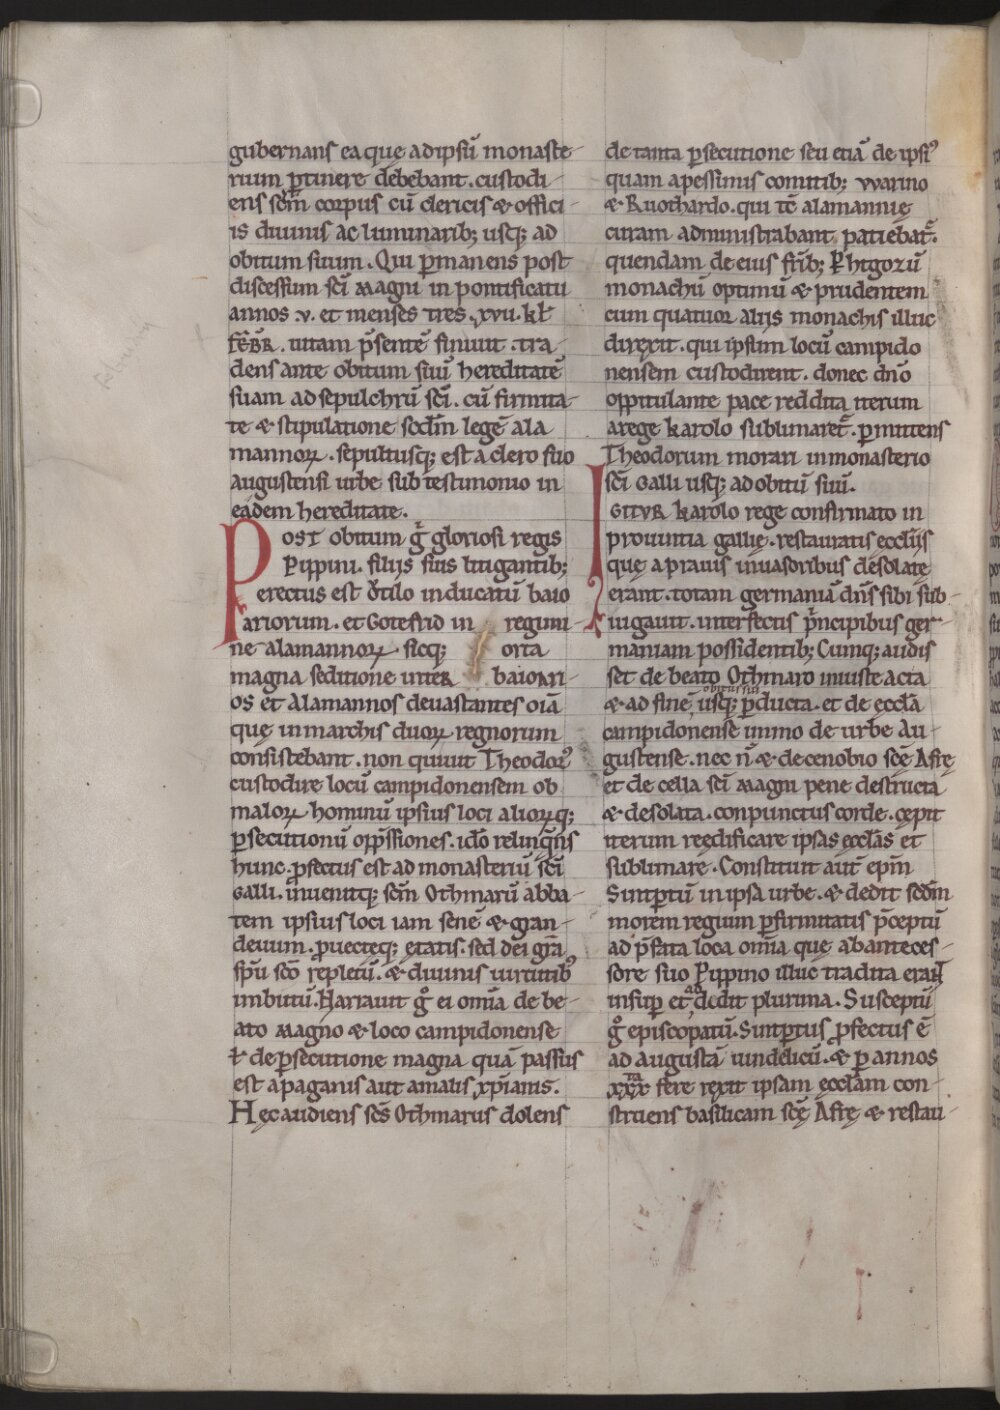 gubernans ea quę ad ipsū monaste-
rium ꝑtinere debebant. custodi-
ens sc̄m corpus cū clericis & offici-
is diuinis ac luminarib; usq; ad
obitum suum. Qui ꝑmanens post
discessum sc̄i magni in pontificatu
annos .v. et menses tres. xvii. kł
FEBR̄. uitam p̄sentē finiuit. tra-
dens ante obitum suū hereditatē
suam ad sepulchrū sc̄i. cū firmita-
te & stipulatione scd̄m legē ala
mannoꝝ. sepultusq; est a clero suo
augustensi urbe sub testimonio in
eadem hereditate.
POST obitum g̊ gloriosi regis
Pippini. filijs suis litigantib;
erectus est ōtilo in ducatū baio
ariorum. et Gotefrid in regimi-
ne alamannoꝝ. sicq; orta
magna seditione inter baioari-
os et Alamannos deuastantes oīa
quę in marchis duoꝝ regnorum
consistebant. non quiuit Theodor᾿
custodire locū campidonensem ob
maloꝝ hominū ipsius loci alioꝝq;
ꝑsecutionū opp̄ssiones. idō relinq̄ns
hunc. ꝓfectus est ad monasteriū sc̄i
Galli. inuenitq; sc̄m Othmarū abba-
tem ipsius loci iam senē & gran-
deuum. ꝓuecteq; ętatis. sed dei gr̄a
sp̄u sc̄o repletū. & diuinis uirtutib᾿
imbutū. Narrauit g̊ ei om̄ia de be-
ato magno & loco campidonense
ł de ꝑsecutione magna quā passus
est a paganis aut a malis xp̄ianis.
Hęc audiens sc̄s Othmarus dolens
de tanta ꝑsecutione seu etiā de ipsi᾿
quam a pessimis comitib; vvarino
& Ruothardo. qui tc̄ alamannię
curam administrabant patiebat᾿.
quendam de eius fr̄ib; Phtgozū
monachū optimū & prudentem
cum quatuor alijs monachis illuc
direxit. qui ipsum locū campido
nensem custodirent. donec dn̄o
oppitulante pace reddita iterum
a rege karolo sublimaret᾿. ꝑmittens
Theodorum morari in monasterio
sc̄i Galli usq; ad obitū suū.
IGITVR karolo rege confirmato in
prouintia gallię. restauratis ęccl̄ijs
quę a prauis inuasoribus desolatę
erant. totam germaniū dn̄s sibi sub-
iugauit. interfectis p̄ncipibus ger-
maniam possidentib; Cumq; audis
set de beato Othmaro iniuste acta
& ad finē obitus sui usq; ꝑducta. et de ęccl̄a
campidonense immo de urbe Au-
gustense. nec n̄ & de cenobio sc̄ę Afrę
et de cella sc̄i magni pene destructa
& desolata. conpunctus corde. cępit
iterum reędificare ipsas ęccl̄as et
sublimare. Constituit aut̄ ep̄m
Sintꝑtū in ipsa urbe. & dedit sedm̄
morem regium ꝑ firmitatis p̄ceptū
ad p̄fata loca om̄ia quę ab anteces-
sore suo Pippino illuc tradita erant
insuꝑ et addedit plurima. Susceptū
g̊ episcopatū. Sintꝑtus ꝓfectus ē
ad augustā uindelicū. & ꝑ annos
xxxta fere rexit ipsam ęccl̄am con-
struens basilicam sc̄ę Afrę & restau-